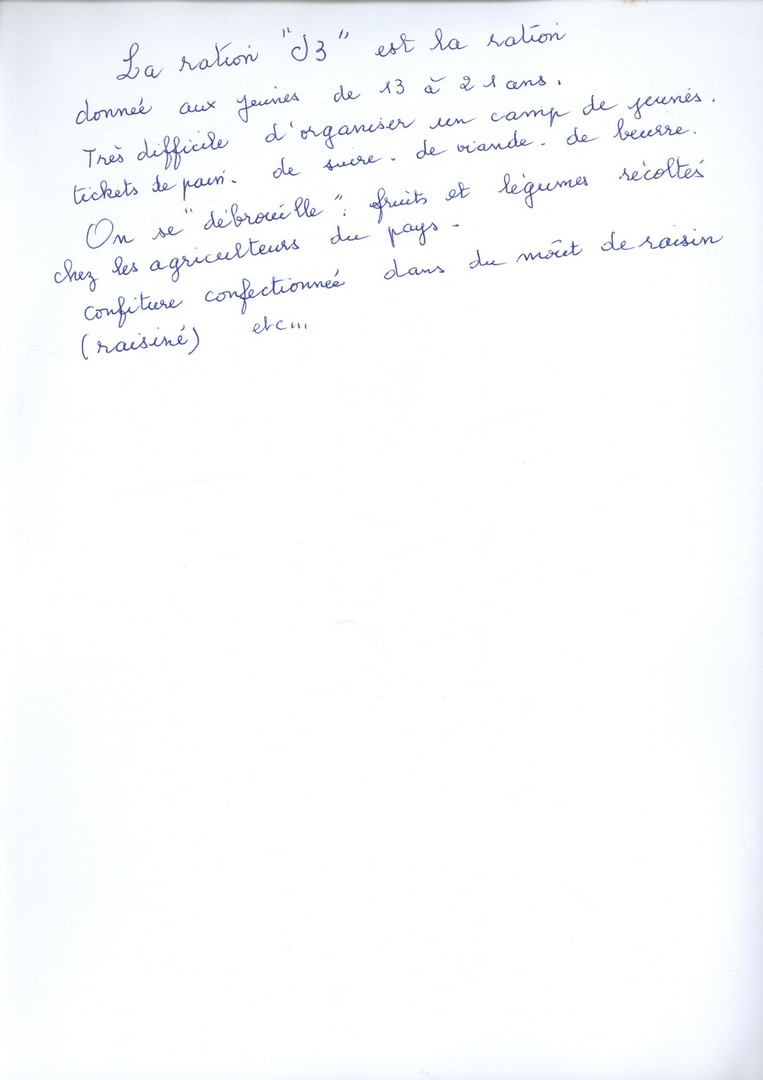 La ration "J3" est la ration
donneé aux jeunes de 13 à 21 ans.
Très difficile d'organiser un camp de jeunes.
tickets de pain. de sucre. de viande. de beurre.
On se "débrouille": fruits et légumes récoltés
chez les agriculteurs du pays.
confiture confectionneé dans du moût de raisin
(raisiné) etc...